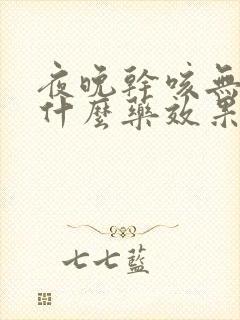 夜晚幹咳無
什麼藥效果
七七藍